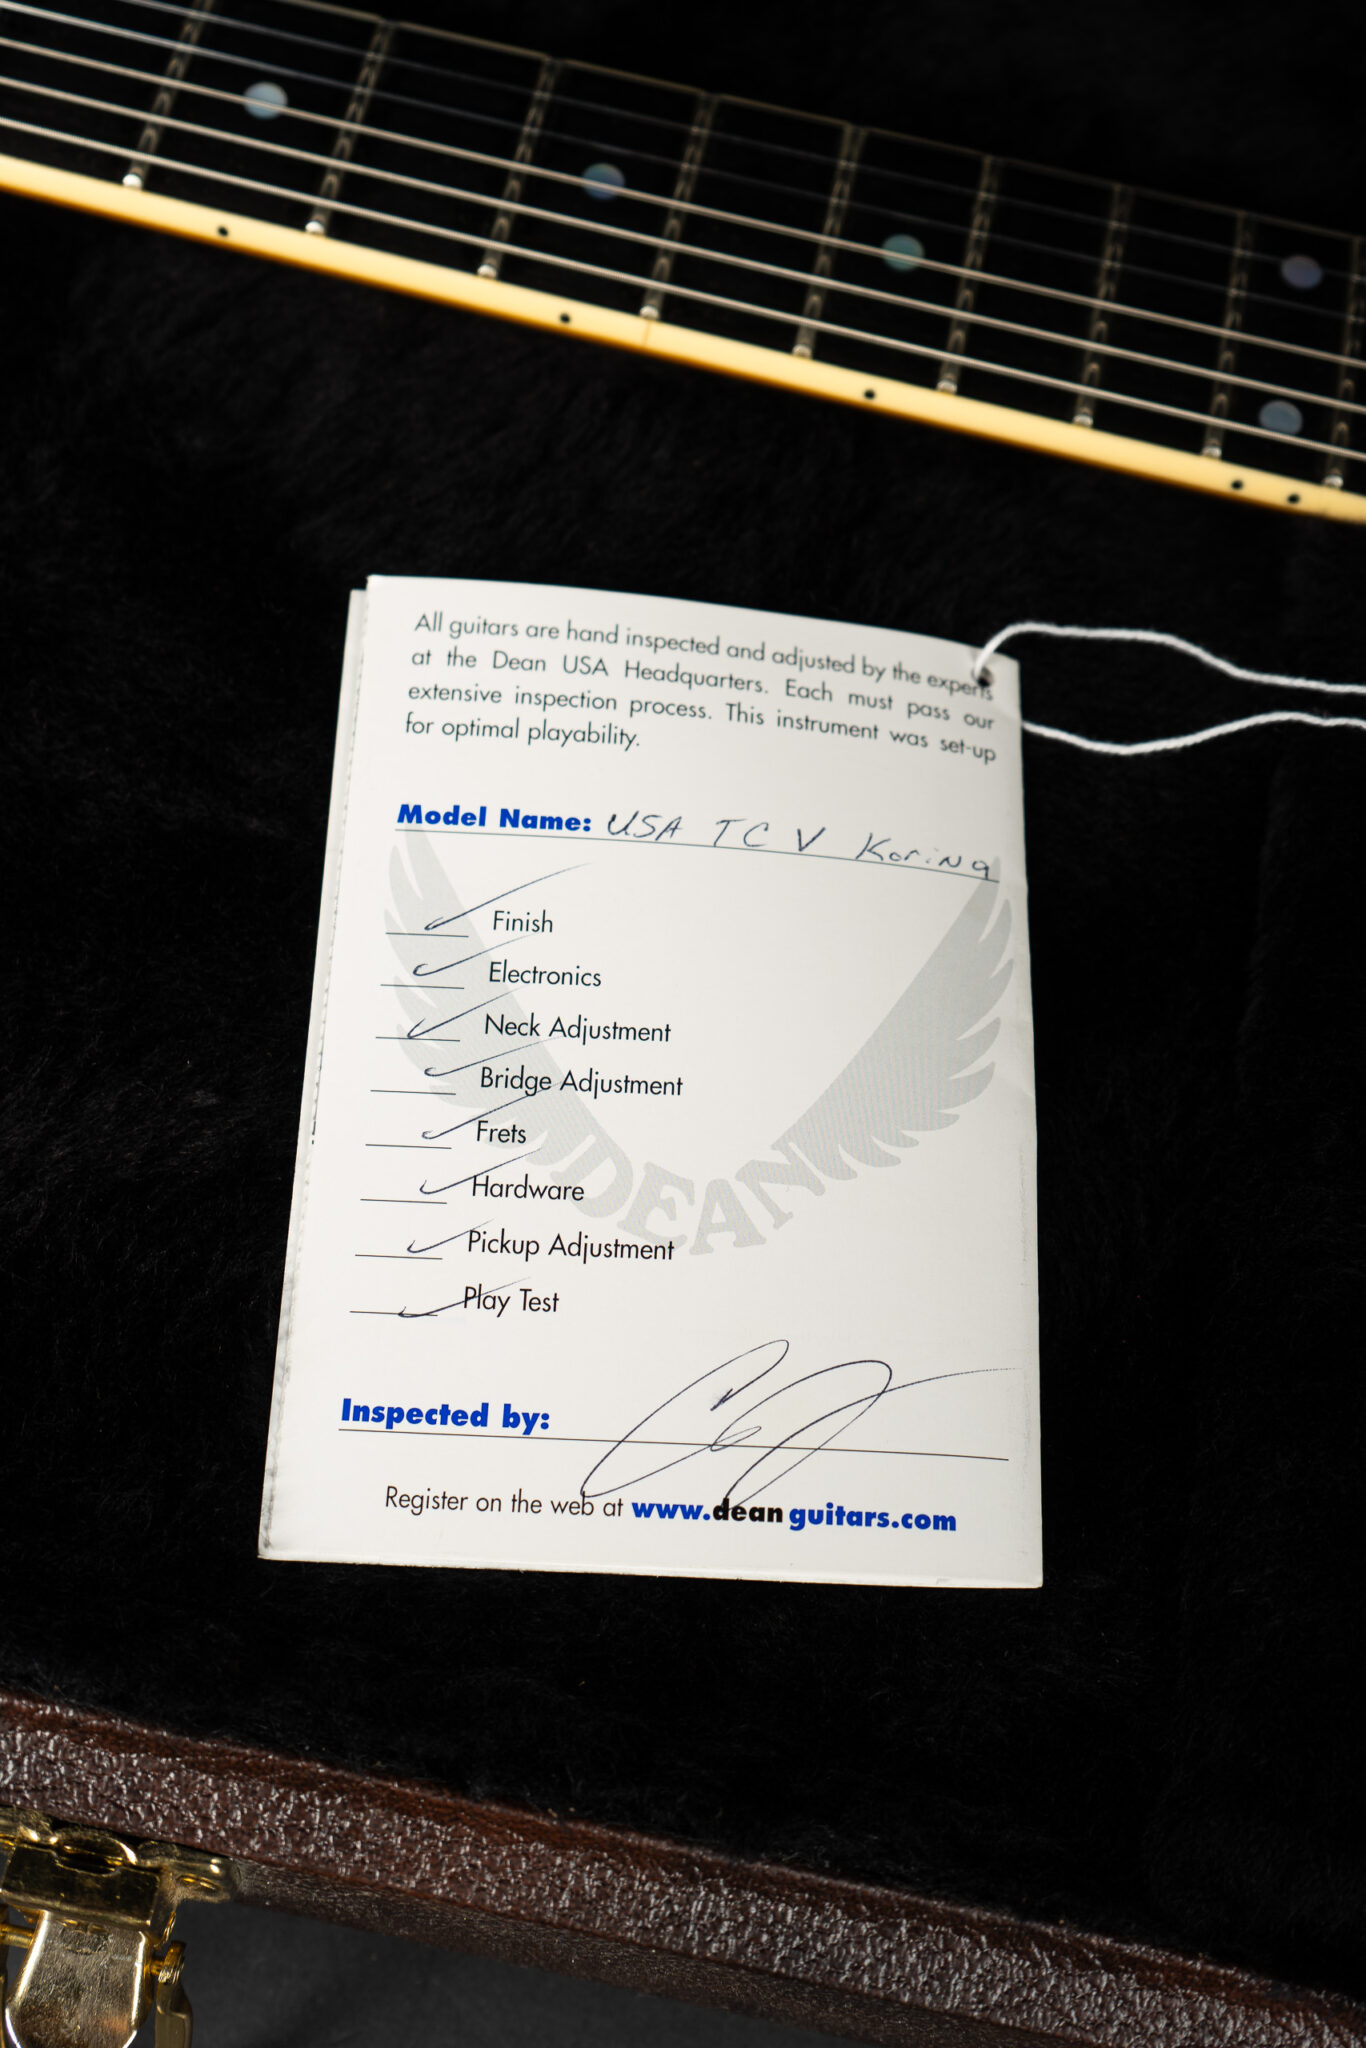 All guitars are hand inspected and adjusted by the experts
at the Dean USA Headquarters. Each must pass our
extensive inspection process. This instrument was set-up
for optimal playability.
Model Name: USA TC V Korina
Finish
Electronics
Neck Adjustment
Bridge Adjustment
Frets
Hardware
DEAN
Pickup Adjustment
Play Test
Inspected by:
Register on the web at www.deanguitars.com